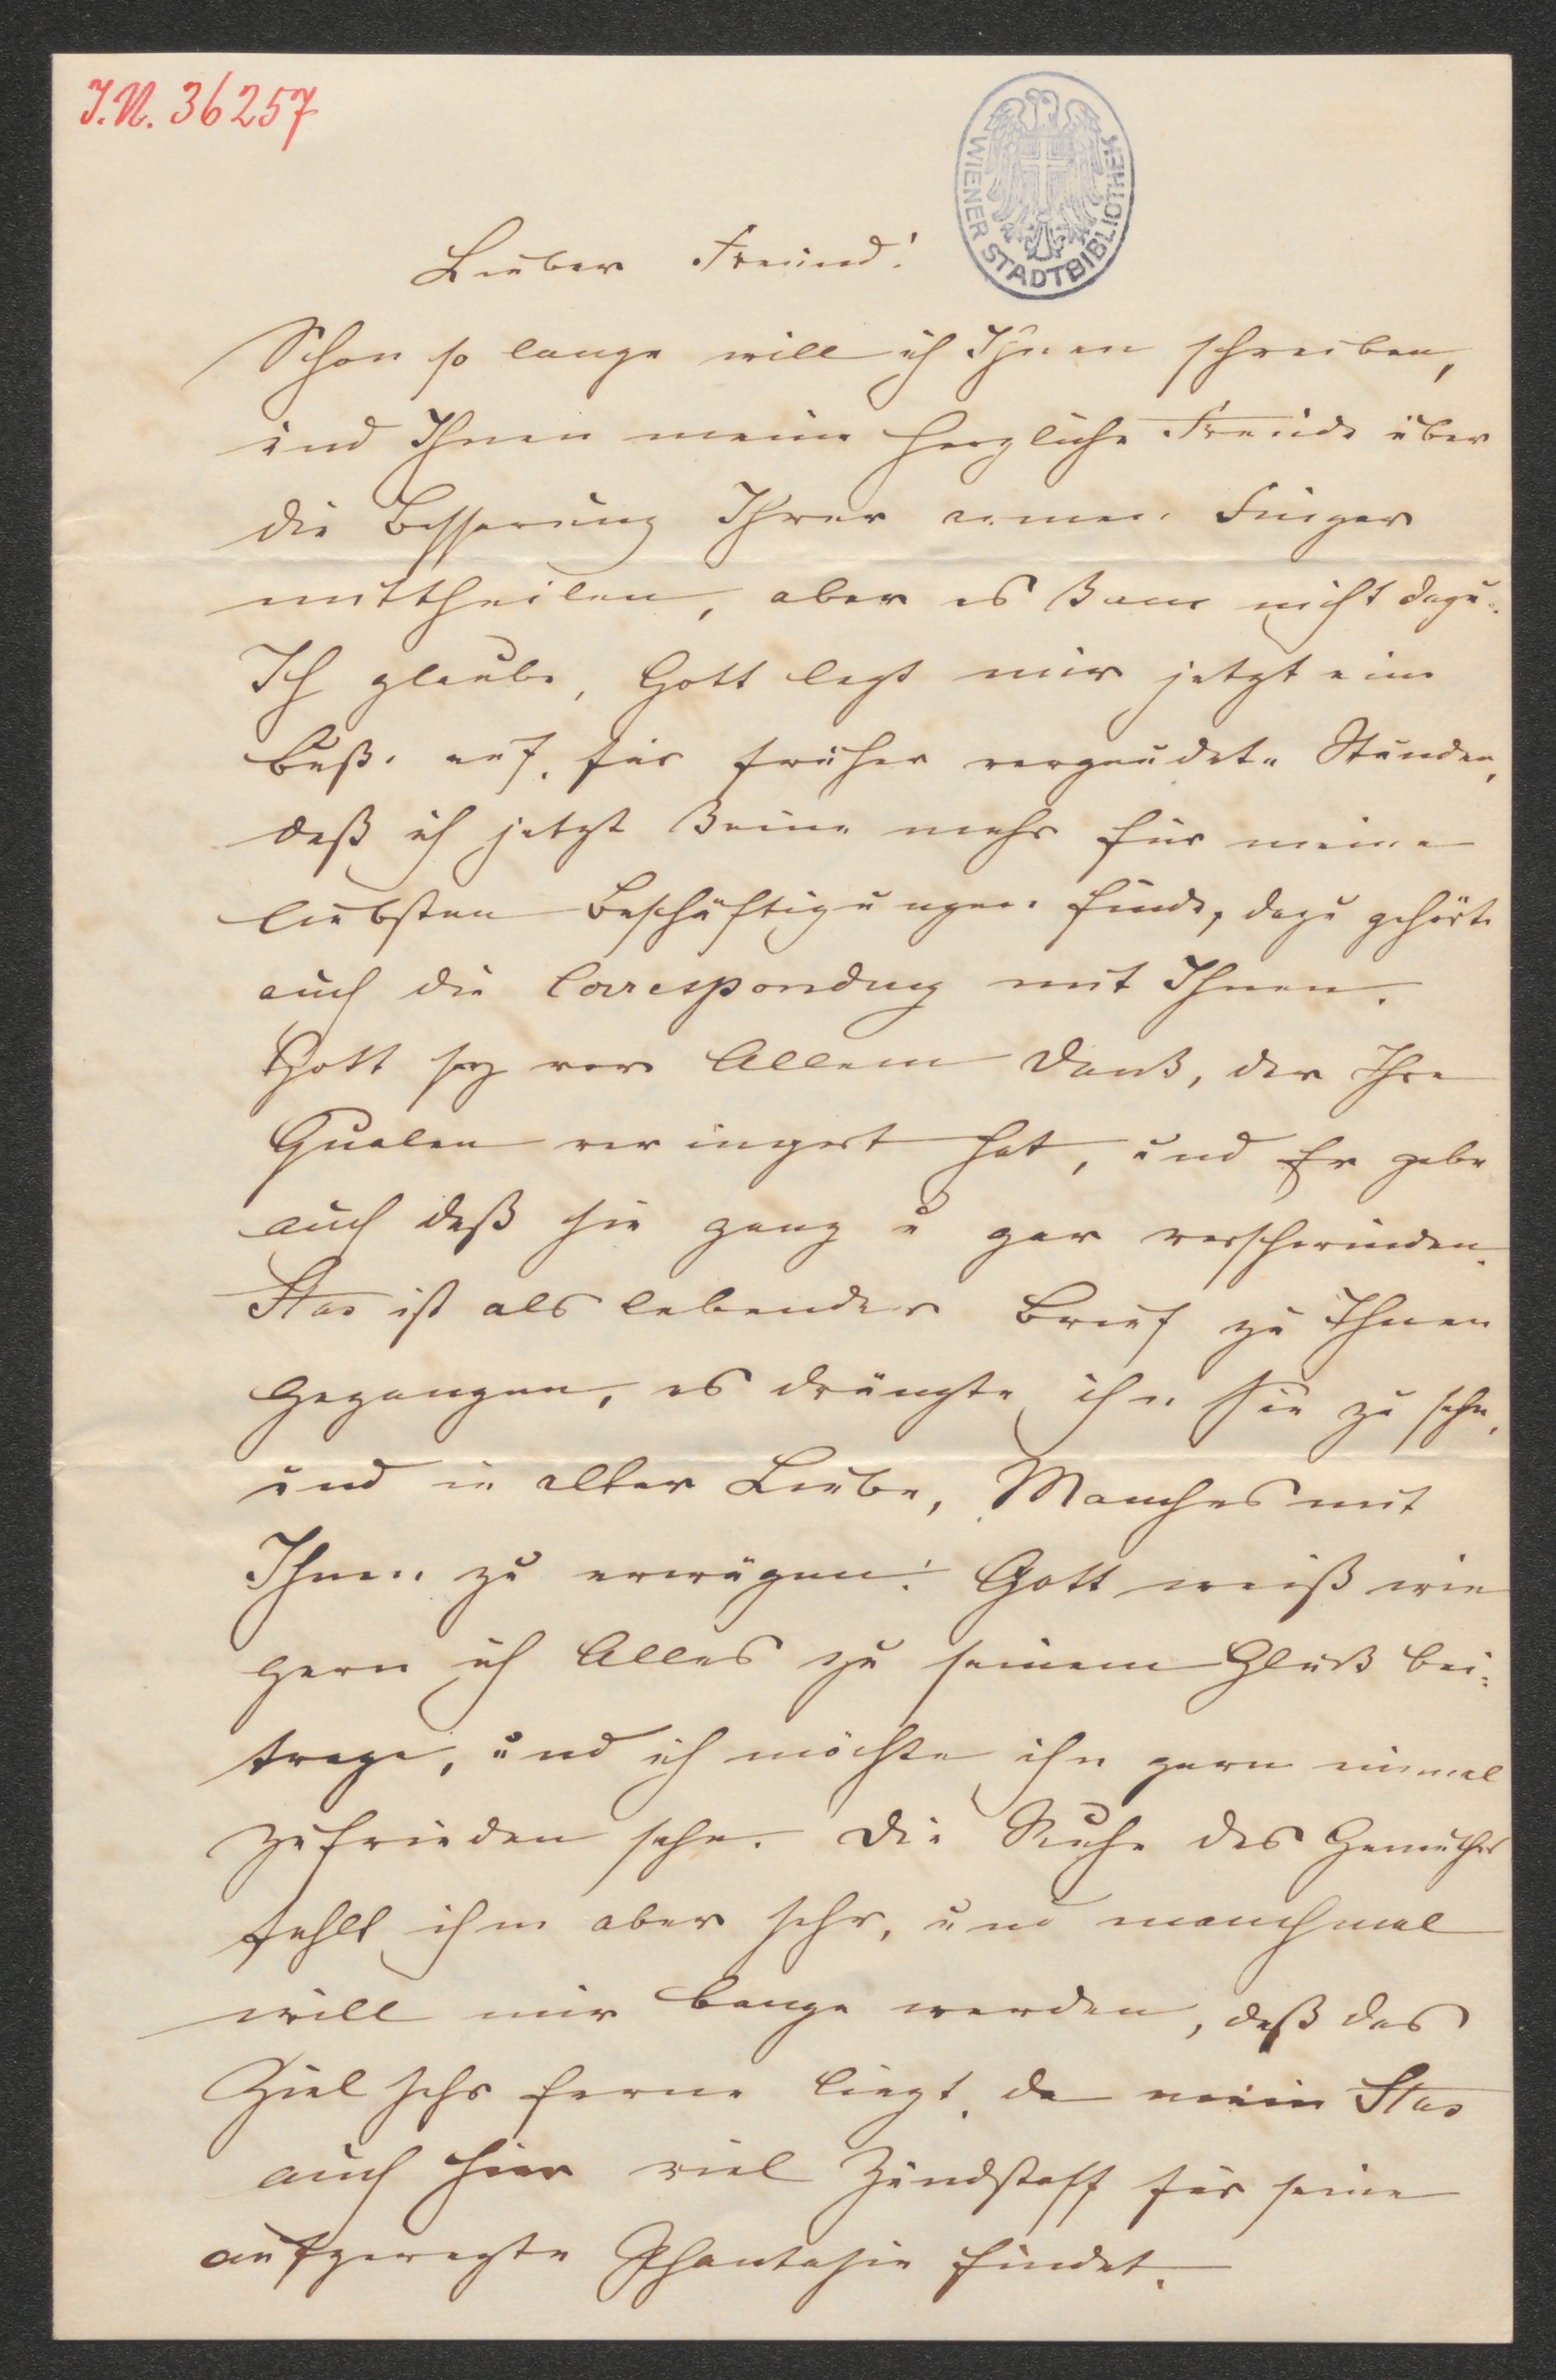 I.N. 36257
WIENER STADTBIBLIOTHEK
Lieber Freund!
Schon so lange will ich Ihnen schreiben,
und Ihnen meine herzliche Freude über
die Besserung Ihrer armen Finger
mittheilen, aber es kam nicht dazu.
Ich glaube, Gott legt mir jetzt eine
Buße auf, für früher vergeudete Stunden,
daß ich jetzt keine mehr für meine
liebsten Beschäftigungen finde, dazu gehört
auch die Correspondnz mit Ihnen.
Gott sey vor Allem Dank, der Ihre
Qualen verringert hat, und Er gebe
auch daß sie ganz u gar verschwinden.
Stas ist als lebender Brief zu Ihnen
gegangen, es drängte ihn Sie zu sehn,
und in alter Liebe, Manches mit
Ihnen zu erwägen! Gott weiß wie
gern ich Alles zu seinem Glück bei-
trage, und ich möchte ihn gern einmal
zufrieden sehn. Die Ruhe des Gemüthes
fehlt ihm aber sehr, und manchmal
will mir bange werden, daß das
Ziel sehr ferne liegt, da mein Stas
auch hier viel Zündstoff für seine
aufgeregte Phantasie findet.